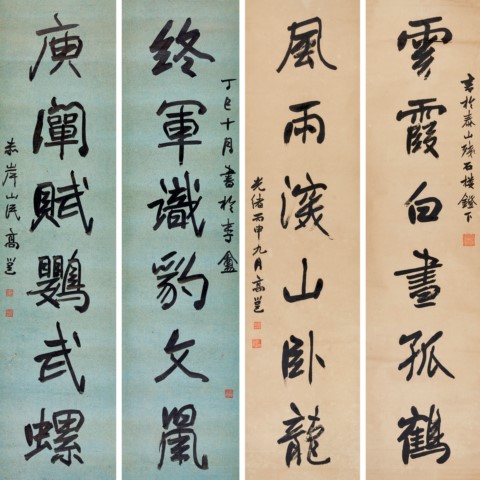 書於泰山殘石樓鐙下
雲霞白晝孤鶴
風雨深山卧龍
光緒丙申九月高邕
丁巳十月書於李盦
終軍識豹文鼠
庾闡賦鸚武螺
赤岸山民高邕